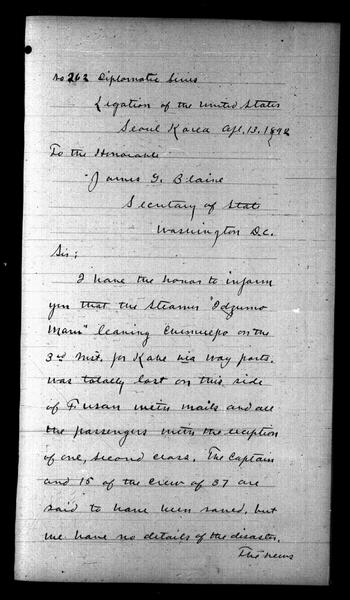 No 262 Diplomatic Series
Legation of the United States
Seoul Korea Apl. 13. 1892
To the Honorable
James G. Blaine
Secretary of State
Washington D.C.
Sir;
I have the honor to inform
you that the Steamer "Idzumo
Maru" leaving Chemulpo on the
3rd inst. for Kobe via way ports.
was totally lost on this side
of Fusan with mails and all
the passengers with the exception
of one, second class. The Captain
and 15 of the crew of 37 are
said to have been saved. but
we have no details of the disaster.
The news